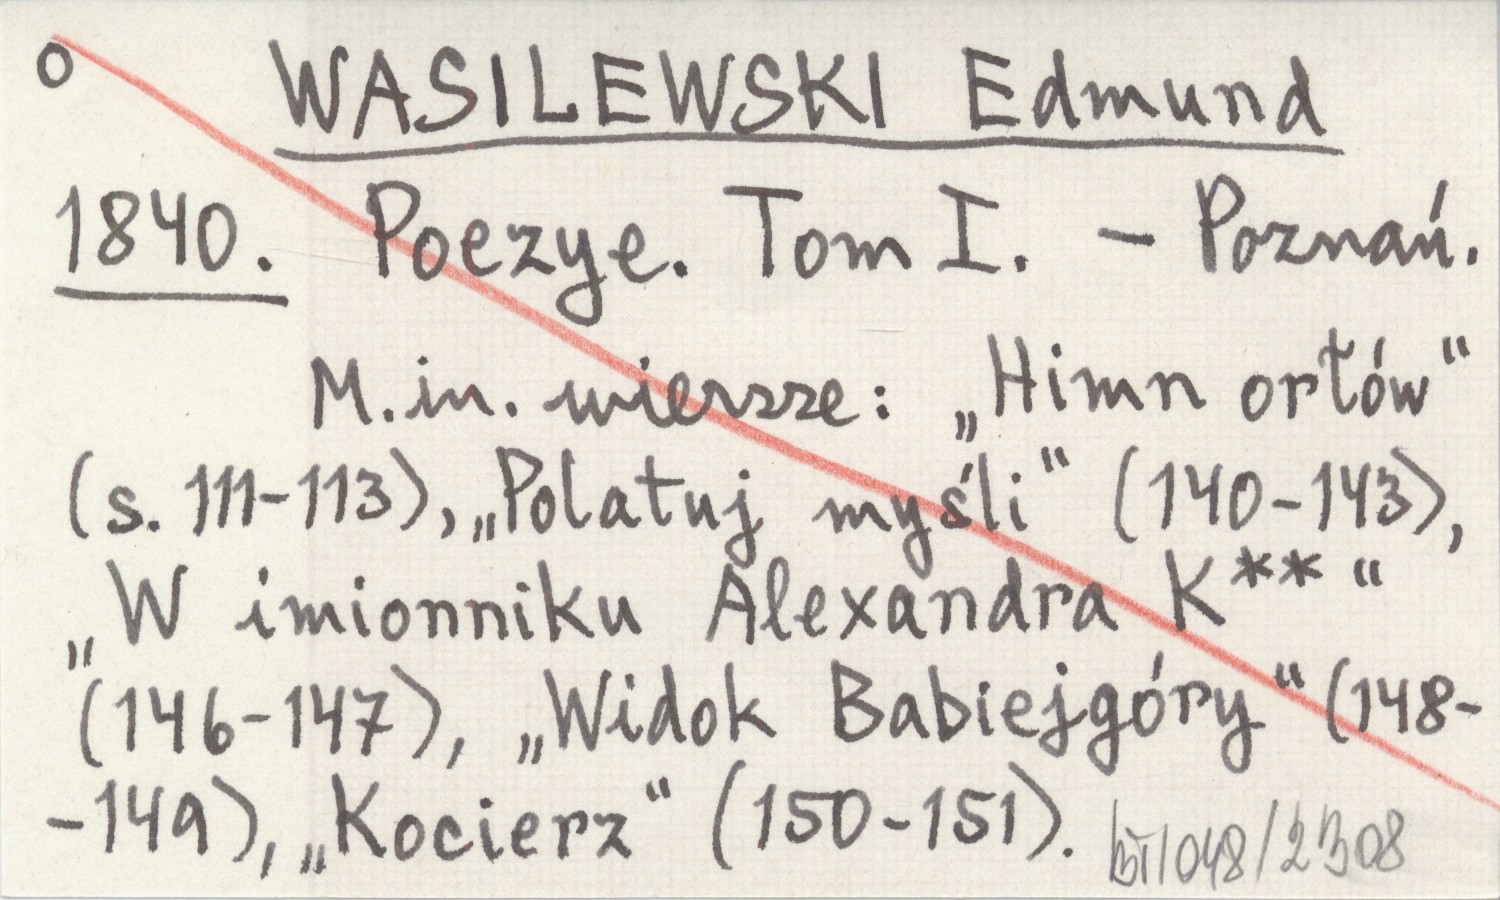 o WASILEWSKI Edmund
1840. Poezye. Tom I. – Poznań.
M.in. wiersze: „Himn orłów“
(s. 111-113), „Polatuj myśli“ (140-143),
„W imionniku Alexandra K**“
(146-147), „Widok Babiejgóry“ (148-
-149), „Kocierz“ (150-151).